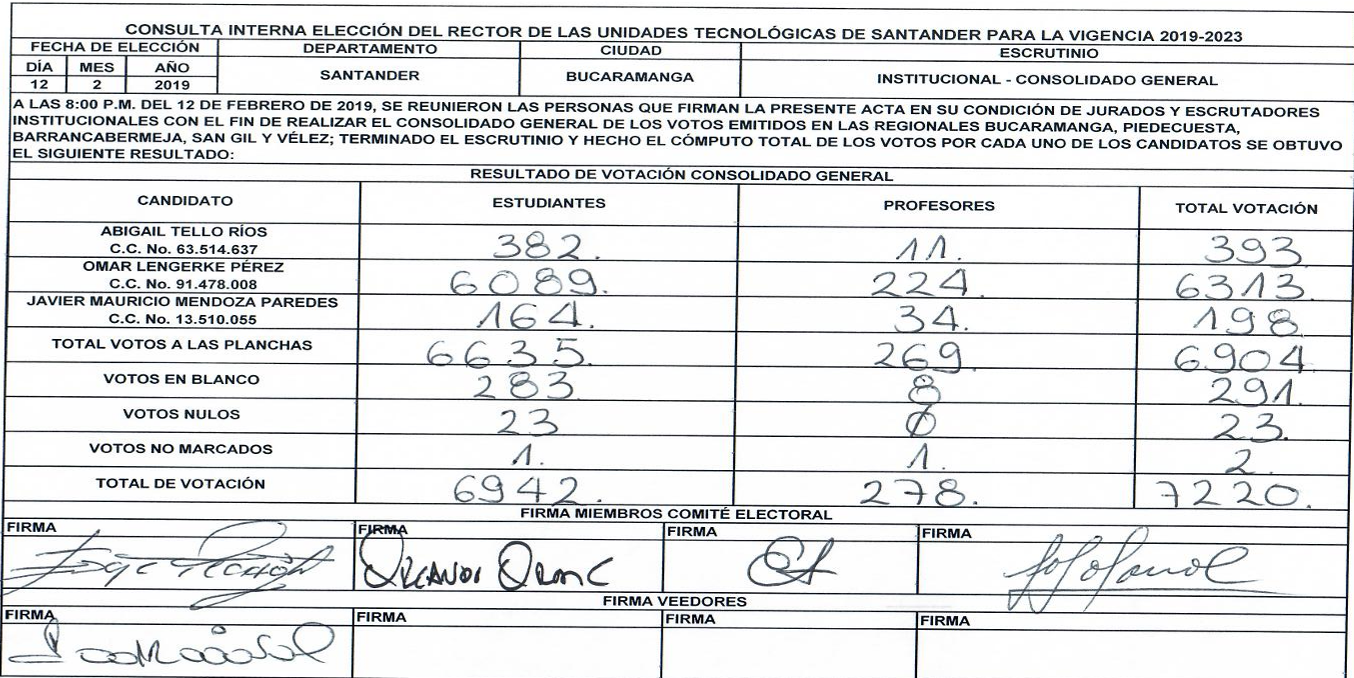 CONSULTA INTERNA ELECCIÓN DEL RECTOR DE LAS UNIDADES TECNOLÓGICAS DE SANTANDER PARA LA VIGENCIA 2019-2023
FECHA DE ELECCIÓN DEPARTAMENTO CIUDAD ESCRUTINIO
DÍA MES AÑO SANTANDER BUCARAMANGA INSTITUCIONAL - CONSOLIDADO GENERAL
12 2 2019
A LAS 8:00 P.M. DEL 12 DE FEBRERO DE 2019, SE REUNIERON LAS PERSONAS QUE FIRMAN LA PRESENTE ACTA EN SU CONDICIÓN DE JURADOS Y ESCRUTADORES
INSTITUCIONALES CON EL FIN DE REALIZAR EL CONSOLIDADO GENERAL DE LOS VOTOS EMITIDOS EN LAS REGIONALES BUCARAMANGA, PIEDECUESTA,
BARRANCABERMEJA, SAN GIL Y VÉLEZ; TERMINADO EL ESCRUTINIO Y HECHO EL CÓMPUTO TOTAL DE LOS VOTOS POR CADA UNO DE LOS CANDIDATOS SE OBTUVO
EL SIGUIENTE RESULTADO:
RESULTADO DE VOTACIÓN CONSOLIDADO GENERAL
CANDIDATO ESTUDIANTES PROFESORES TOTAL VOTACIÓN
ABIGAIL TELLO RÍOS
C.C. No. 63.514.637 382. 11. 393
OMAR LENGERKE PÉREZ
C.C. No. 91.478.008 6089. 224. 6313.
JAVIER MAURICIO MENDOZA PAREDES
C.C. No. 13.510.055 164. 34. 198
TOTAL VOTOS A LAS PLANCHAS 6635. 269. 6904
VOTOS EN BLANCO 283 8 291.
VOTOS NULOS 23 0 23.
VOTOS NO MARCADOS 1. 1. 2.
TOTAL DE VOTACIÓN 6942. 278. 7220.
FIRMA MIEMBROS COMITÉ ELECTORAL
FIRMA FIRMA FIRMA FIRMA
FIRMA VEEDORES
FIRMA FIRMA FIRMA FIRMA